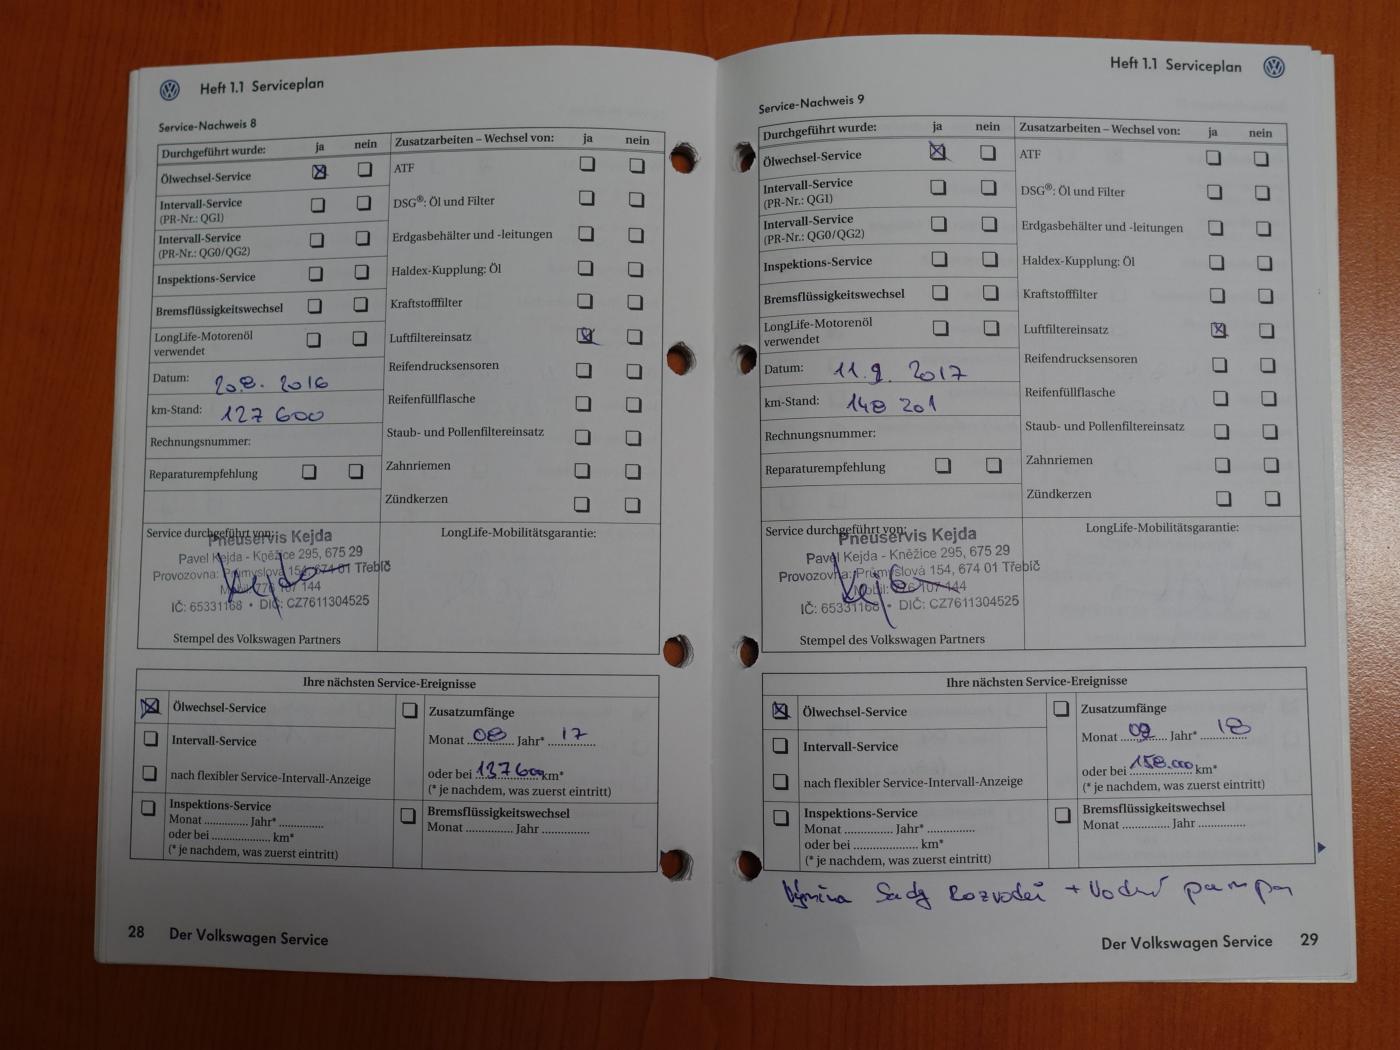 Heft 1.1 Serviceplan
Service-Nachweis 8
Durchgeführt wurde: ja nein
Ölwechsel-Service
Intervall-Service
(PR-Nr.: QG1)
Intervall-Service
(PR-Nr.: QG0/QG2)
Inspektions-Service
Bremsflüssigkeitswechsel
LongLife-Motorenöl
verwendet
Datum: 20.8. 2016
km-Stand: 127 600
Rechnungsnummer:
Reparaturempfehlung
Zusatzarbeiten – Wechsel von: ja nein
ATF
DSG®: Öl und Filter
Erdgasbehälter und -leitungen
Haldex-Kupplung: Öl
Kraftstofffilter
Luftfiltereinsatz
Reifendrucksensoren
Reifenfüllflasche
Staub- und Pollenfiltereinsatz
Zahnriemen
Zündkerzen
Service durchgeführt von:
Pneuservis Kejda
Pavel Kejda - Kněžice 295, 675 29
Provozovna: Průmyslová 154, 674 01 Třebíč
Mobil: 776 107 144
IČ: 65331168 • DIČ: CZ7611304525
Kejda
Stempel des Volkswagen Partners
LongLife-Mobilitätsgarantie:
Ihre nächsten Service-Ereignisse
Ölwechsel-Service
Intervall-Service
nach flexibler Service-Intervall-Anzeige
Inspektions-Service
Monat ............. Jahr* .............
oder bei .................... km*
(* je nachdem, was zuerst eintritt)
Zusatzumfänge
Monat 08 Jahr* 17
oder bei 137600 km*
(* je nachdem, was zuerst eintritt)
Bremsflüssigkeitswechsel
Monat ............. Jahr .............
28 Der Volkswagen Service
Heft 1.1 Serviceplan
Service-Nachweis 9
Durchgeführt wurde: ja nein
Ölwechsel-Service
Intervall-Service
(PR-Nr.: QG1)
Intervall-Service
(PR-Nr.: QG0/QG2)
Inspektions-Service
Bremsflüssigkeitswechsel
LongLife-Motorenöl
verwendet
Datum: 11.9. 2017
km-Stand: 148 201
Rechnungsnummer:
Reparaturempfehlung
Zusatzarbeiten – Wechsel von: ja nein
ATF
DSG®: Öl und Filter
Erdgasbehälter und -leitungen
Haldex-Kupplung: Öl
Kraftstofffilter
Luftfiltereinsatz
Reifendrucksensoren
Reifenfüllflasche
Staub- und Pollenfiltereinsatz
Zahnriemen
Zündkerzen
Service durchgeführt von:
Pneuservis Kejda
Pavel Kejda - Kněžice 295, 675 29
Provozovna: Průmyslová 154, 674 01 Třebíč
Mobil: 776 107 144
IČ: 65331168 • DIČ: CZ7611304525
Kejda
Stempel des Volkswagen Partners
LongLife-Mobilitätsgarantie:
Ihre nächsten Service-Ereignisse
Ölwechsel-Service
Intervall-Service
nach flexibler Service-Intervall-Anzeige
Inspektions-Service
Monat ............. Jahr* .............
oder bei .................... km*
(* je nachdem, was zuerst eintritt)
Zusatzumfänge
Monat 09 Jahr* 18
oder bei 158.000 km*
(* je nachdem, was zuerst eintritt)
Bremsflüssigkeitswechsel
Monat ............. Jahr .............
Výměna Sady Rozvodů + Vodní pumpa
Der Volkswagen Service 29